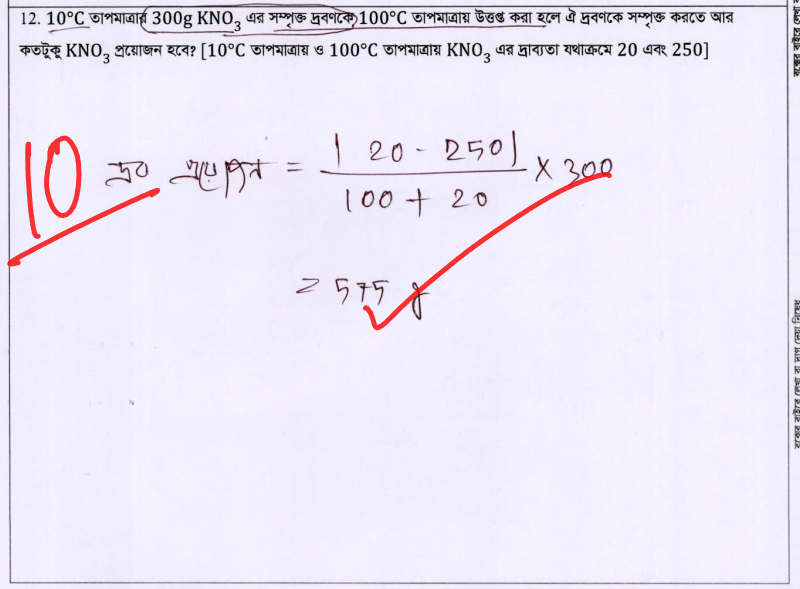 12. 10°C তাপমাত্রায় 300g KNO₃ এর সম্পৃক্ত দ্রবণকে 100°C তাপমাত্রায় উত্তপ্ত করা হলে ঐ দ্রবণকে সম্পৃক্ত করতে আর
কতটুকু KNO₃ প্রয়োজন হবে? [10°C তাপমাত্রায় ও 100°C তাপমাত্রায় KNO₃ এর দ্রাব্যতা যথাক্রমে 20 এবং 250]
10
দ্রব প্রয়োজন = |20 - 250| / 100 + 20 × 300
= 575 g